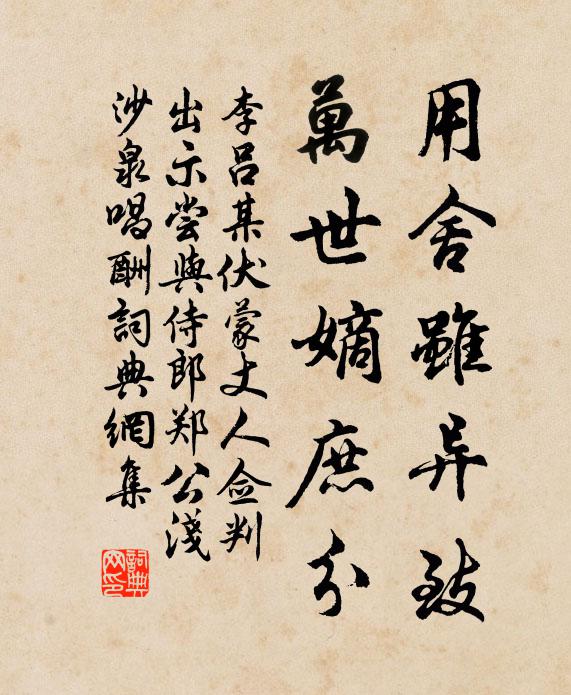 用舍雖异致
萬世嫡庶分
李吕某伏蒙丈人佥判
出示尝與侍郎郑公淺
沙泉唱酬詞典網集
詞典網印